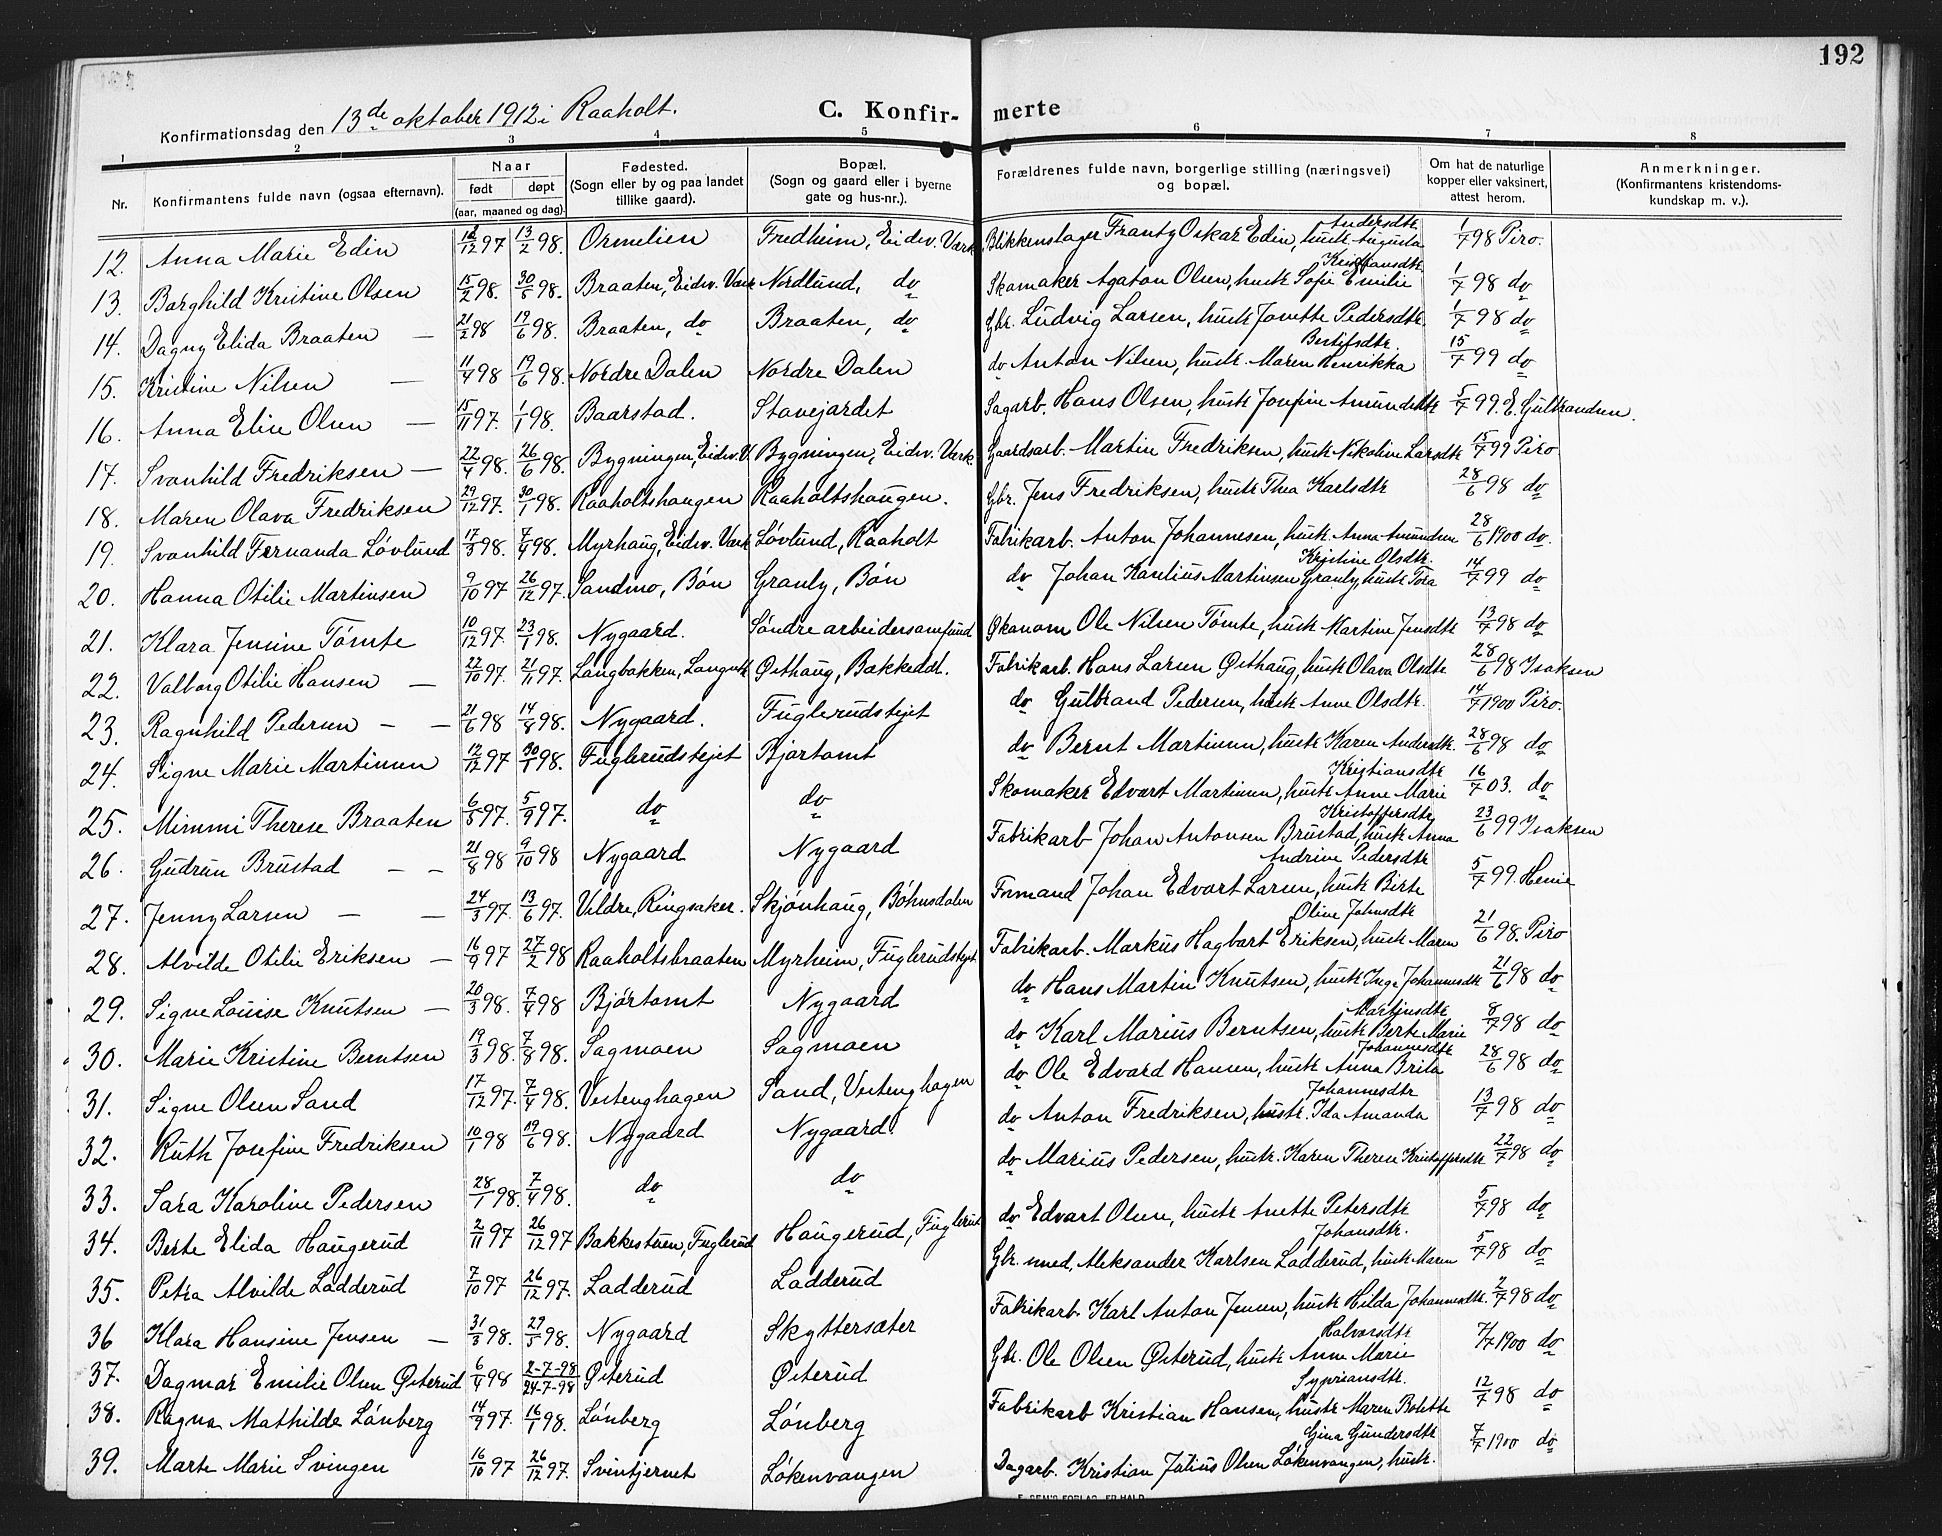 192
Konfirmationsdag den 13de oktober 1912 i Raaholt. C. Konfir- merte
1 2 3 4 5 6 7 8
Nr. Konfirmantens fulde navn (ogsaa efternavn). Naar født døpt (aar, maaned og dag). Fødested. (Sogn eller by og paa landet tillike gaard). Bopæl. (Sogn og gaard eller i byerne gate og hus-nr.). Forældrenes fulde navn, borgerlige stilling (næringsvei) og bopæl. Om hat de naturlige kopper eller vaksinert, attest herom. Anmerkninger. (Konfirmantens kristendoms- kundskap m. v.).
12. Anna Marie Edin 12/97 13/2 98. Ormelien Fredheim, Eidsv. Værk Blikkenslager Frantz Oskar Edin, hustr. Augusta Andersdtr. 1/7 98 Piro.
13. Borghild Kristine Olsen 15/2 98. 30/5 98. Braaten, Eidsv. Værk Nordlund, do Skomaker Agaton Olsen, hustr. Sofie Emilie Kristiansdtr. 1/7 98 do
14. Dagny Elida Braaten — 21/2 98 19/6 98. Braaten, do Braaten, do Gbr. Ludvig Larsen, hustr. Josette Pedersdtr. 1/7 98 do
15. Kristine Nilsen — 11/4 98 19/6 98. Nordre Dalen Nordre Dalen do Anton Nilsen, hustr. Maren Henrikka 15/7 99 do
16. Anna Elise Olsen — 15/11 97. 1/1 98. Baarstad. Stavejardet Sagarb. Hans Olsen, hustr. Josefine Amundsdtr 5/7 99. E. Gulbrandsen.
17. Svanhild Fredriksen — 22/4 98. 26/6 98. Bygningen, Eidsv. V. Bygningen, Eidsv. Værk. Gaardsarb. Martin Fredriksen, hustr. Nikoline Larsdtr 15/7 99 Piro
18. Maren Olava Fredriksen 29/12 97. 30/1 98. Raaholtshaugen Raaholtshaugen. Gbr. Jens Fredriksen, hustr. Thea Karlsdtr 28/6 98 do
19. Svanhild Fernanda Løvlund 17/3 98. 7/4 98. Myrhaug, Eidsv. Værk Løvlund, Raaholt Fabrikarb. Anton Johannesen, hustr. Anna Amundsen 28/6 1900 do.
20. Hanna Otilie Martinsen 9/10 97 26/12 97. Sandmo, Bøn Granly, Bøn do Johan Karelius Martinsen Granly, hustr. Tora Kristine Olsdtr. 14/7 99 do
21. Klara Jensine Tømte 10/12 97. 23/1 98. Nygaard. Søndre arbeidersamfund Økonom Ole Nilsen Tømte, hustr. Martine Jensdtr 13/7 98 do
22. Valborg Otilie Hansen — 22/10 97. 21/11 97. Langbakken, Langset Østhaug, Bakkedal. Fabrikarb. Hans Larsen Østhaug, hustr. Olava Olsdtr 28/6 98 Isaksen
23. Ragnhild Pedersen — — 21/6 98 14/8 98. Nygaard. Fuglerudstejet do Gulbrand Pedersen, hustr. Anne Olsdtr. 14/7 1900 Piro.
24. Signe Marie Martinsen 12/12 97 30/1 98. Fuglerudstejet Bjørtomt do Bernt Martinsen, hustr. Karen Andersdtr. 28/6 98 do
25. Mimmi Therese Braaten 6/5 97. 5/9 97. do do Skomaker Edvart Martinsen, hustr. Anne Marie Kristiansdtr 16/7 03. do
26. Gudrun Brustad — — 21/8 98 9/10 98 Nygaard Nygaard Fabrikarb Johan Antonsen Brustad, hustr. Anna Kristoffersdtr 23/6 99 Isaksen
27. Jenny Larsen — — 24/3 97. 13/6 97. Veldre, Ringsaker. Skjønhaug, Bøhnsdalen Formand Johan Edvart Larsen, hustr. Birte Andrine Pedersdtr 5/7 99. Henie
28. Alvilde Otilie Eriksen — 16/9 97 27/2 98 Raaholtsbraaten Myrheim, Fuglerudstejet Fabrikarb. Markus Hagbart Eriksen, hustr. Maren Oline Johnsdtr 21/6 98. Piro
29. Signe Louise Knutsen — 20/3 98. 7/4 98 Bjørtomt Nygaard do Hans Martin Knutsen, hustr. Inge Johannesdtr 21/6 98 do
30. Marie Kristine Berntsen 19/3 98. 7/8 98. Sagmoen Sagmoen do Karl Marius Berntsen, hustr. Berte Marie Martinsdtr 8/7 98 do
31. Signe Olsen Sand 17/12 97. 7/4 98. Vestenghagen Sand, Vestenghagen do Ole Edvard Hansen, hustr. Anna Brita Johannesdtr 28/6 98 do
32. Ruth Josefine Fredriksen 10/1 98 19/6 98. Nygaard Nygaard. do Anton Fredriksen, hustr. Ida Amanda Johannesdtr 13/7 98 do
33. Sara Karoline Pedersen 28/1 98. 7/4 98. do do do Marius Pedersen, hustr. Karen Therese Kristoffersdtr 22/7 98 do
34. Berte Elida Haugerud 2/11 97 26/12 97 Bakkestuen, Fuglerud Haugerud, Fuglerud do Edvart Olsen, hustr. Anette Petersdtr 5/7 98 do
35. Petra Alvilde Ladderud 7/10 97 26/12 97. Ladderud Ladderud Gbr. smed, Aleksander Karlsen Ladderud, hustr. Maren Johansdtr. 5/7 98 do
36 Klara Hansine Jensen — 31/3 98. 29/5 98. Nygaard Skyttersæter Fabrikarb. Karl Anton Jensen, hustr. Hilda Johannesdtr. 2/7 98 do
37. Dagmar Emilie Olsen Østerud 6/4 98 2-7-98 24-7-98 Østerud Østerud Gbr. Ole Olsen Østerud, hustr. Anne Marie Halvorsdtr 7/7 1900 do
38. Ragna Mathilde Lønberg 14/9 97. 16/1 98. Lønberg Lønberg Fabrikarb Kristian Hansen, hustr. Maren Bolette 12/7 98 do
39. Marte Marie Svingen 16/10 97 26/12 97. Svintjernet Løkenvangen Dagarb. Kristian Julius Olsen Løkenvangen, hustr. Gina Gundersdtr 7/7 1900 do